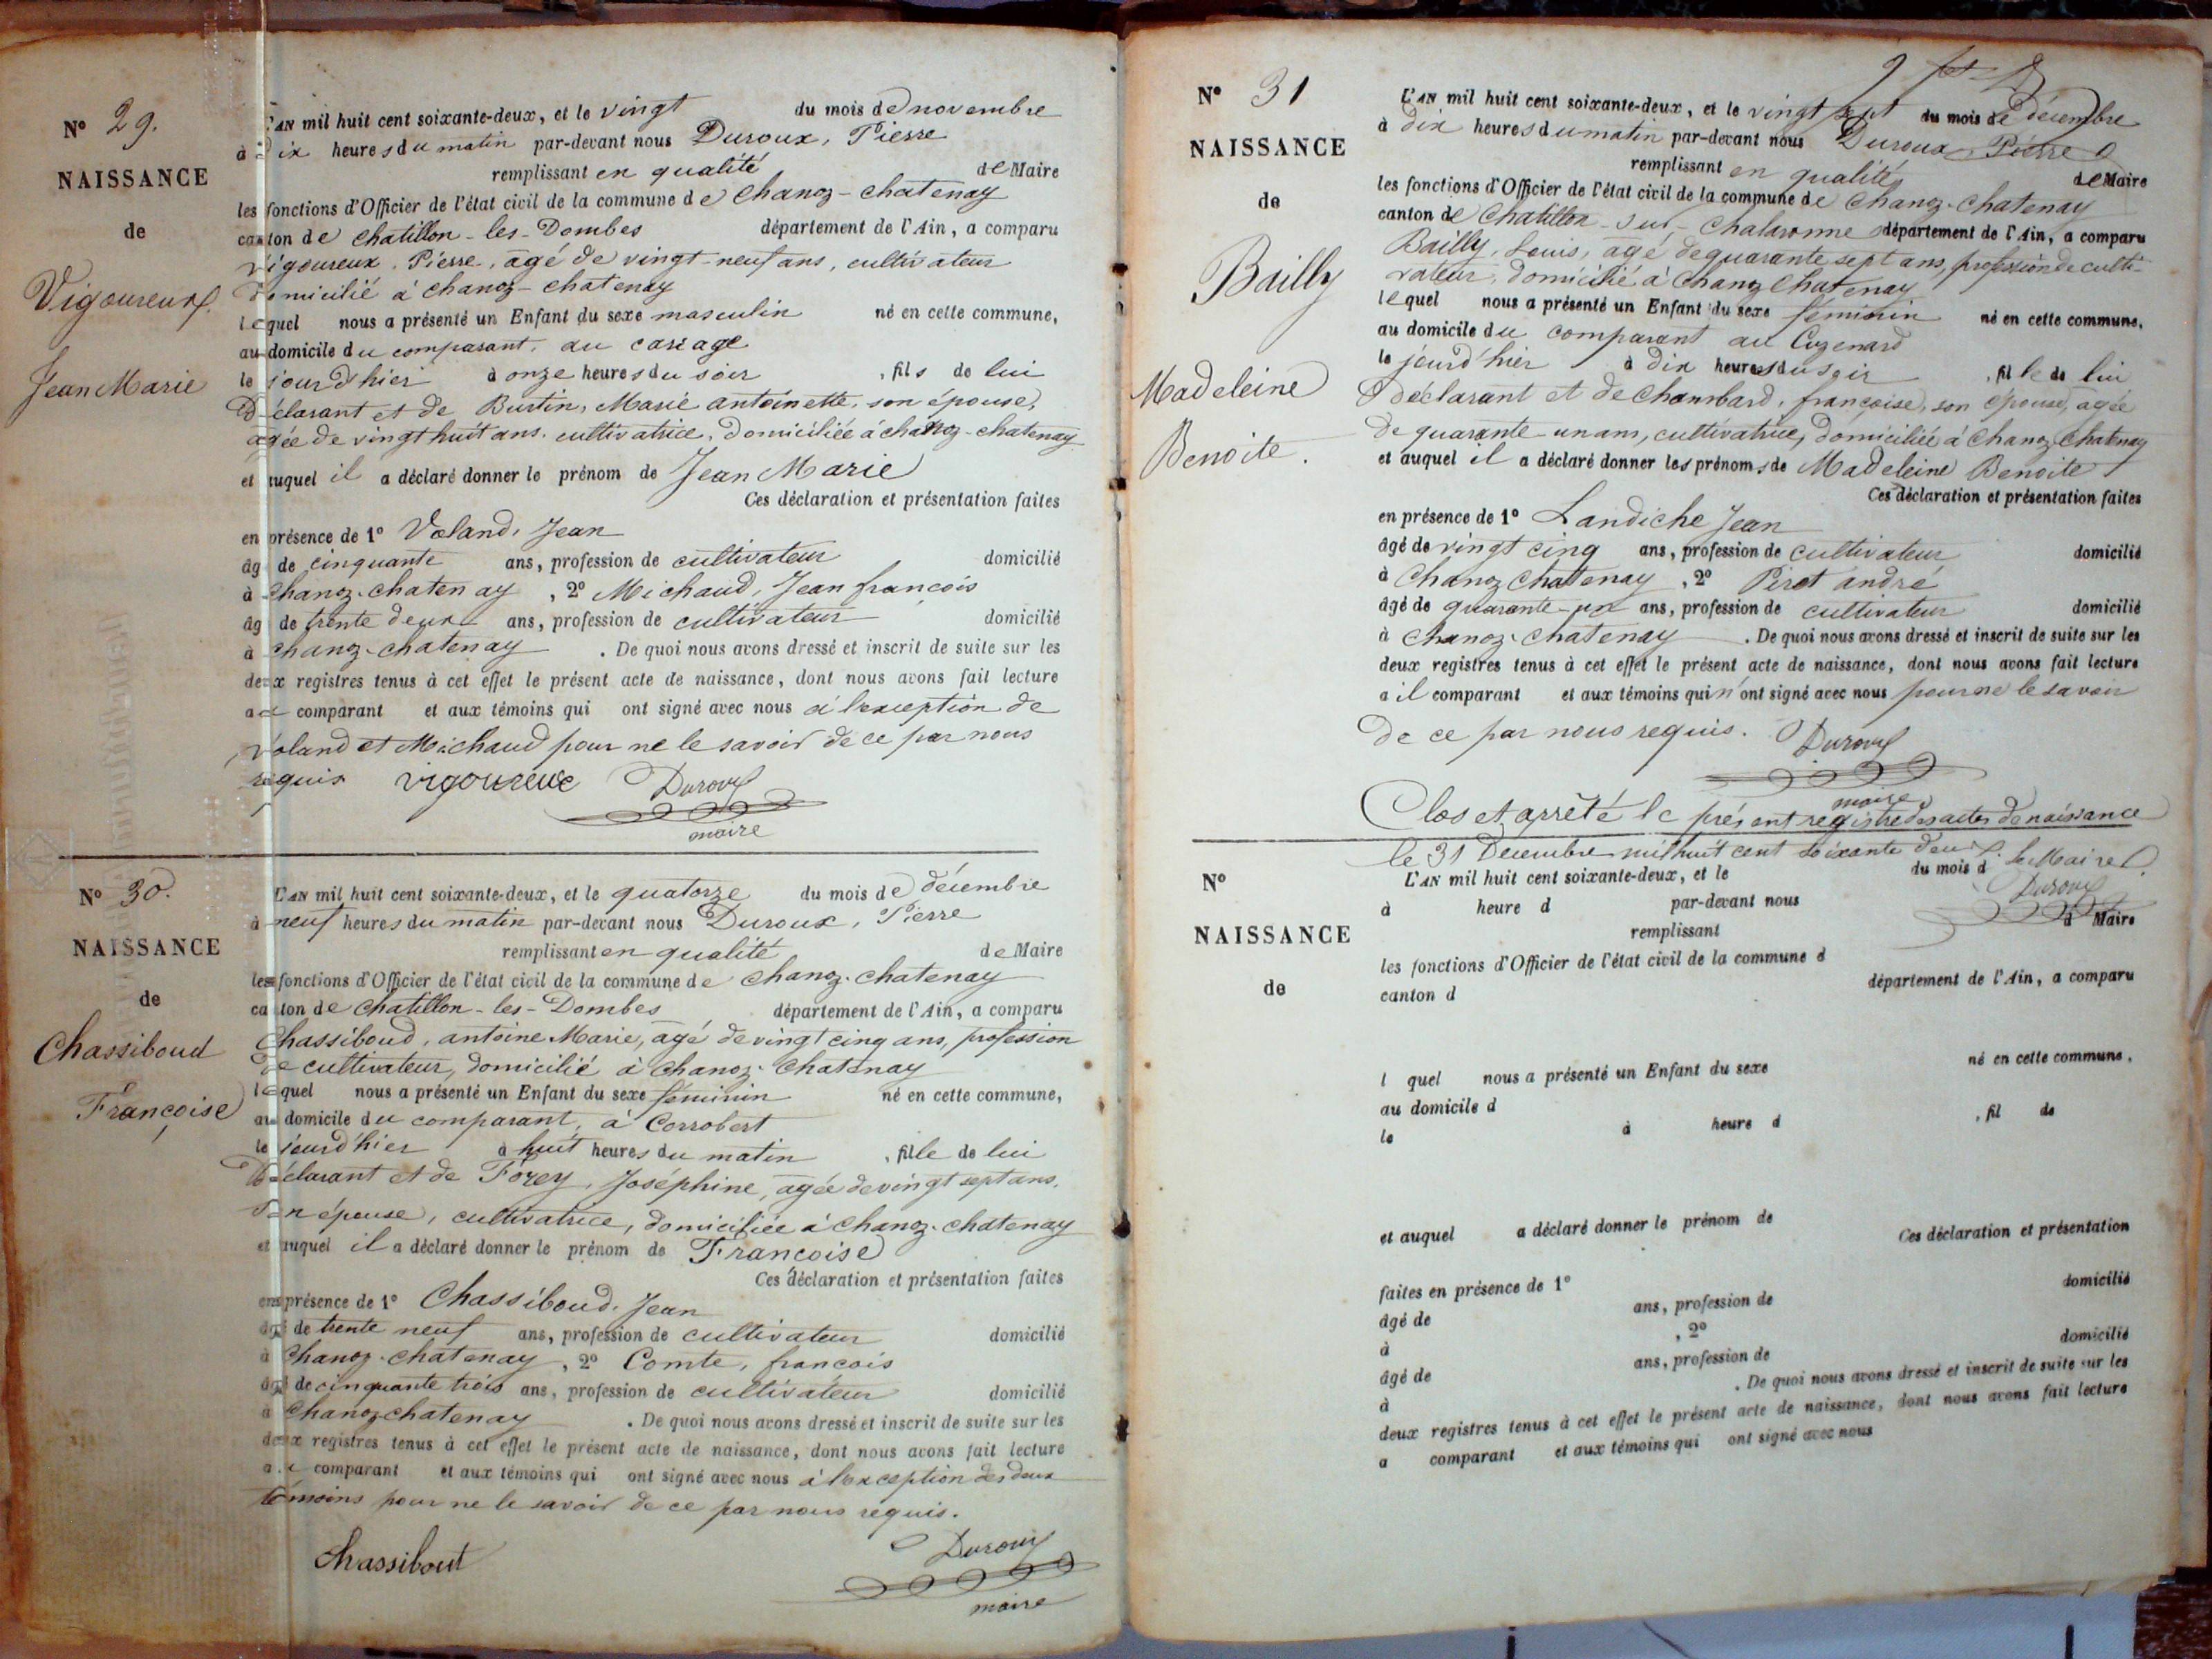 N° 29.
NAISSANCE
de
Vigoureux
Jean Marie
L'AN mil huit cent soixante-deux, et le vingt du mois de novembre
à dix heures du matin par-devant nous Duroux, Pierre
remplissant en qualité de Maire
les fonctions d'Officier de l'état civil de la commune de Chanoz-Chatenay
canton de Chatillon-les-Dombes département de l'Ain, a comparu
Vigoureux, Pierre, agé de vingt-neuf ans, cultivateur
domicilié à Chanoz-Chatenay
lequel nous a présenté un Enfant du sexe masculin né en cette commune,
au domicile du comparant, au cariage
le jour d'hier à onze heures du soir , fils de lui
Déclarant et de Burtin, Marie antoinette, son épouse,
agée de vingt huit ans, cultivatrice, domiciliée à Chanoz-Chatenay
et auquel il a déclaré donner le prénom de Jean Marie
Ces déclaration et présentation faites
en présence de 1° Voland, Jean
âgé de cinquante ans, profession de cultivateur domicilié
à Chanoz-Chatenay , 2° Michaud, Jean françois
âgé de trente deux ans, profession de cultivateur domicilié
à Chanoz-Chatenay . De quoi nous avons dressé et inscrit de suite sur les
deux registres tenus à cet effet le présent acte de naissance, dont nous avons fait lecture
au comparant et aux témoins qui ont signé avec nous à l'exception de
Voland et Michaud pour ne le savoir de ce par nous
requis vigoureux Duroux
maire
N° 30.
NAISSANCE
de
Chassiboud
Françoise
L'AN mil huit cent soixante-deux, et le quatorze du mois de décembre
à neuf heures du matin par-devant nous Duroux, Pierre
remplissant en qualité de Maire
les fonctions d'Officier de l'état civil de la commune de Chanoz-Chatenay
canton de Chatillon-les-Dombes département de l'Ain, a comparu
Chassiboud, antoine Marie, agé de vingt cinq ans, profession
de cultivateur, domicilié à Chanoz-Chatenay
lequel nous a présenté un Enfant du sexe féminin né en cette commune,
au domicile du comparant, à Corrobert
le jour d'hier à huit heures du matin , fille de lui
Déclarant et de Forey, Joséphine, agée de vingt sept ans,
son épouse, cultivatrice, domiciliée à Chanoz-Chatenay
et auquel il a déclaré donner le prénom de Francoise
Ces déclaration et présentation faites
en présence de 1° Chassiboud, Jean
âgé de trente neuf ans, profession de cultivateur domicilié
à Chanoz-Chatenay , 2° Comte, francois
âgé de cinquante trois ans, profession de cultivateur domicilié
à Chanoz chatenay . De quoi nous avons dressé et inscrit de suite sur les
deux registres tenus à cet effet le présent acte de naissance, dont nous avons fait lecture
au comparant et aux témoins qui ont signé avec nous à l'exception des deux
témoins pour ne le savoir de ce par nous requis.
Chassibout Duroux
maire
N° 31
NAISSANCE
de
Bailly
Madeleine
Benoite.
L'AN mil huit cent soixante-deux, et le vingt sept du mois de décembre
à dix heures du matin par-devant nous Duroux, Pierre
remplissant en qualité de Maire
les fonctions d'Officier de l'état civil de la commune de Chanoz-Chatenay
canton de Chatillon-sur-Chalaronne département de l'Ain, a comparu
Bailly, Louis, agé de quarante sept ans, profession de culti-
vateur, domicilié à Chanoz Chatenay
lequel nous a présenté un Enfant du sexe féminin né en cette commune,
au domicile du comparant au Cuzenard
le jour d'hier à dix heures du soir , fille de lui
Déclarant et de Chambard, françoise, son épouse, agée
de quarante-un ans, cultivatrice, domiciliée à Chanoz Chatenay
et auquel il a déclaré donner les prénoms de Madeleine Benoite
Ces déclaration et présentation faites
en présence de 1° Landiche Jean
âgé de vingt cinq ans, profession de cultivateur domicilié
à Chanoz Chatenay , 2° Pirat andré
âgé de quarante-un ans, profession de cultivateur domicilié
à Chanoz-Chatenay . De quoi nous avons dressé et inscrit de suite sur les
deux registres tenus à cet effet le présent acte de naissance, dont nous avons fait lecture
a il comparant et aux témoins qui n'ont signé avec nous pour ne le savoir
De ce par nous requis. Duroux
maire
Clos et arrêté le présent registre des actes de naissance
le 31 Decembre mil huit cent soixante deux. Le Maire
Duroux
N°
NAISSANCE
de
L'AN mil huit cent soixante-deux, et le du mois d
à heure d par-devant nous
remplissant d Maire
les fonctions d'Officier de l'état civil de la commune d
canton d département de l'Ain, a comparu
l quel nous a présenté un Enfant du sexe né en cette commune,
au domicile d
le à heure d , fil de
et auquel a déclaré donner le prénom de
Ces déclaration et présentation
faites en présence de 1°
âgé de ans, profession de domicilié
à , 2°
âgé de ans, profession de domicilié
à . De quoi nous avons dressé et inscrit de suite sur les
deux registres tenus à cet effet le présent acte de naissance, dont nous avons fait lecture
a comparant et aux témoins qui ont signé avec nous